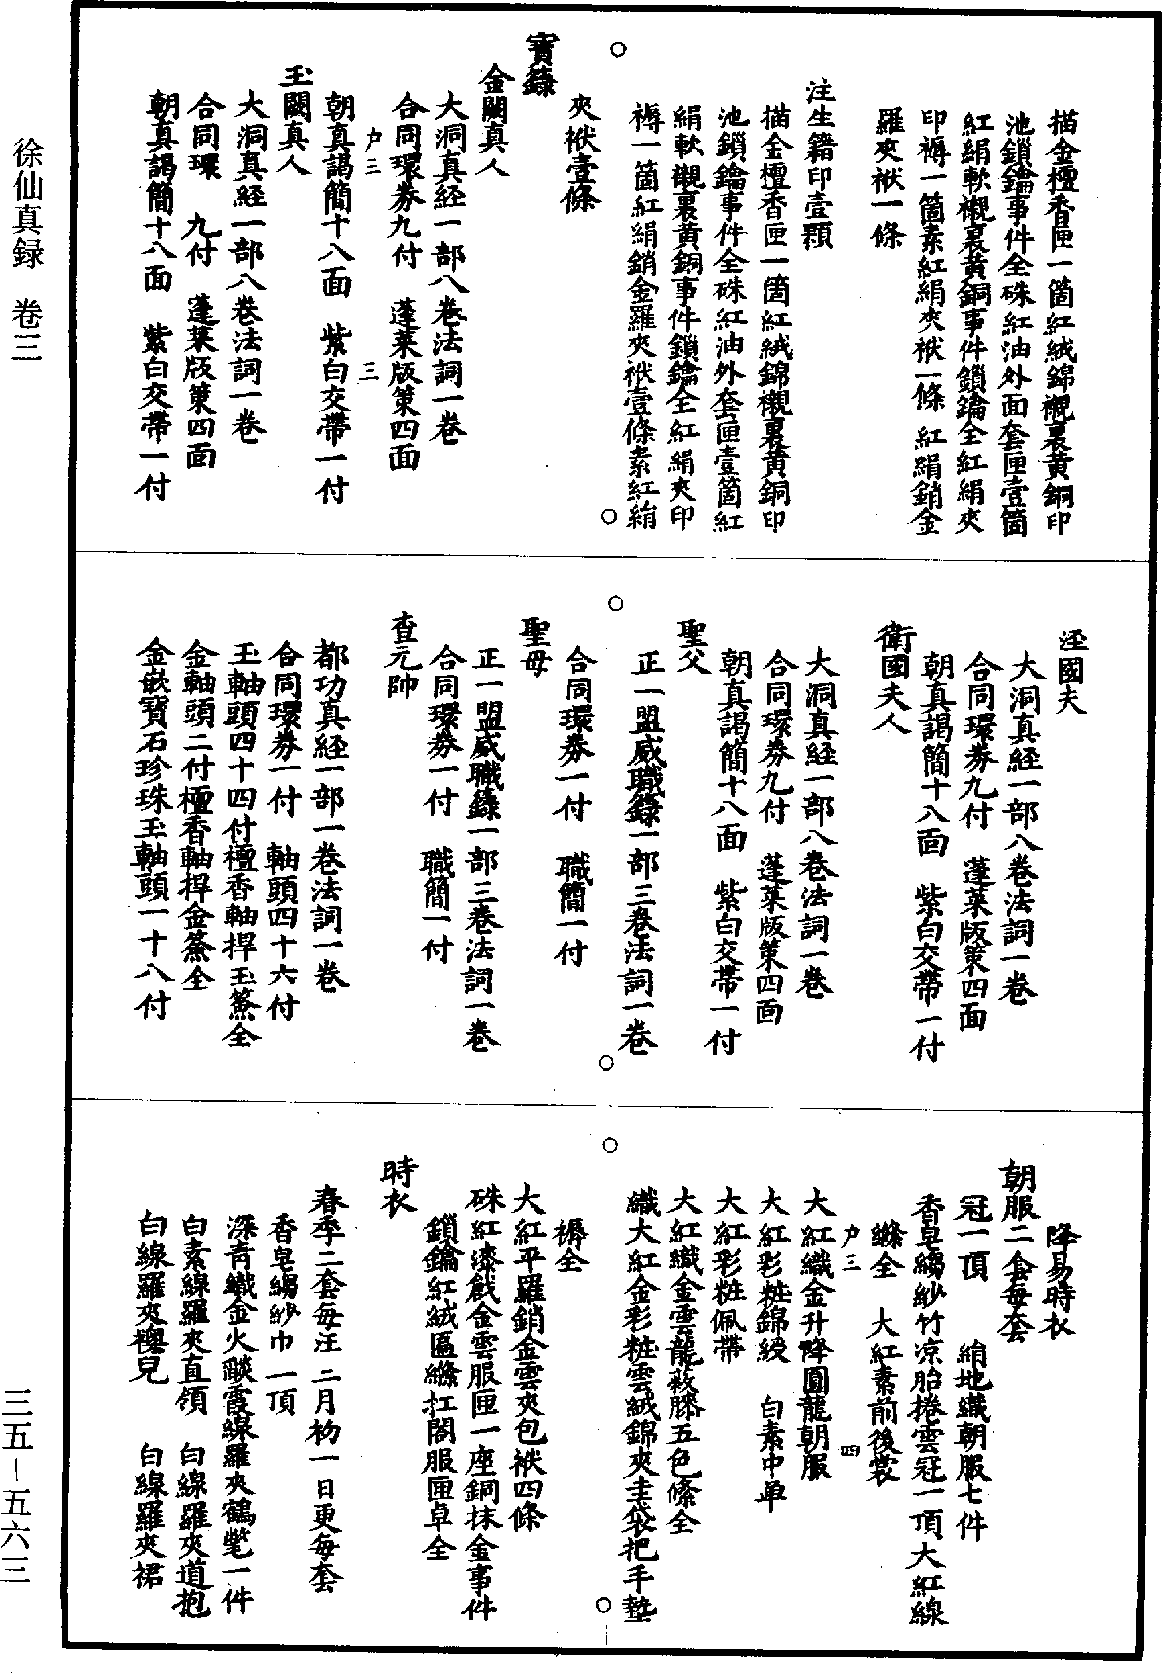 描金檀香匣一箇紅絨錦襯裏黃銅印
池鎖鑰事件全硃紅油外面套匣壹箇
紅絹軟襯裏黃銅事件鎖鑰全紅絹夾
印褥一箇素紅絹夾袱一條紅絹銷金
羅夾袱一條
注生籍印壹顆
描金檀香匣一箇紅絨錦襯裏黃銅印
池鎖鑰事件全硃紅油外套匣壹箇紅
絹軟襯裏黃銅事件鎖鑰全紅絹夾印
褥一箇紅絹銷金羅夾袱壹條素紅絹
夾袱壹條
寶籙
金闕真人
大洞真経一部八巻法詞一巻
合同環券九付　蓬萊版策四面
户三　三
朝真謁簡十八面　紫白交帶一付
玉闕真人
大洞真経一部八巻法詞一巻
合同環　九付　蓬萊版策四面
朝真謁簡十八面　紫白交帶一付
涇國夫
大洞真経一部八巻法詞一巻
合同環券九付　蓬萊版策四面
朝真謁簡十八面　紫白交帶一付
衛國夫人
大洞真経一部八巻法詞一巻
合同環券九付　蓬萊版策四面
朝真謁簡十八面　紫白交帶一付
聖父
正一盟威職籙一部三巻法詞一巻
合同環券一付　職簡一付
聖母
正一盟威職籙一部三巻法詞一巻
合同環券一付　職簡一付
查元帥
都功真経一部一巻法詞一巻
合同環券一付　軸頭四十六付
玉軸頭四十四付檀香軸捍玉簽全
金軸頭二付檀香軸捍金簽全
金嵌寶石珍珠玉軸頭一十八付
降易時衣
朝服二套每套
冠一頂　絹地織朝服七件
香皂縐紗竹凉胎捲雲冠一頂大紅線
縧全　大紅素前後裳
户三　四
大紅織金升降圓龍朝服
大紅彩粧錦綬　白素中单
大紅彩粧佩帶
大紅織金雲龍蔽膝五色縧全
織大紅金彩粧雲絨錦夾圭袋把手墊
褥全
大紅平羅銷金雲夾包袱四條
硃紅漆戧金雲服匣一座銅抹金事件
鎖鑰紅絨匾縧扛閣服匣卓全
時衣
春季二套每汪　二月初一日更每套
香皂縐紗巾　一頂
深青織金火燄霞線羅夾鶴氅一件
白素線羅夾直領　白線羅夾道抱
白線羅夾襖兒　白線羅夾裙
徐仙真録　卷三
三五－五六三